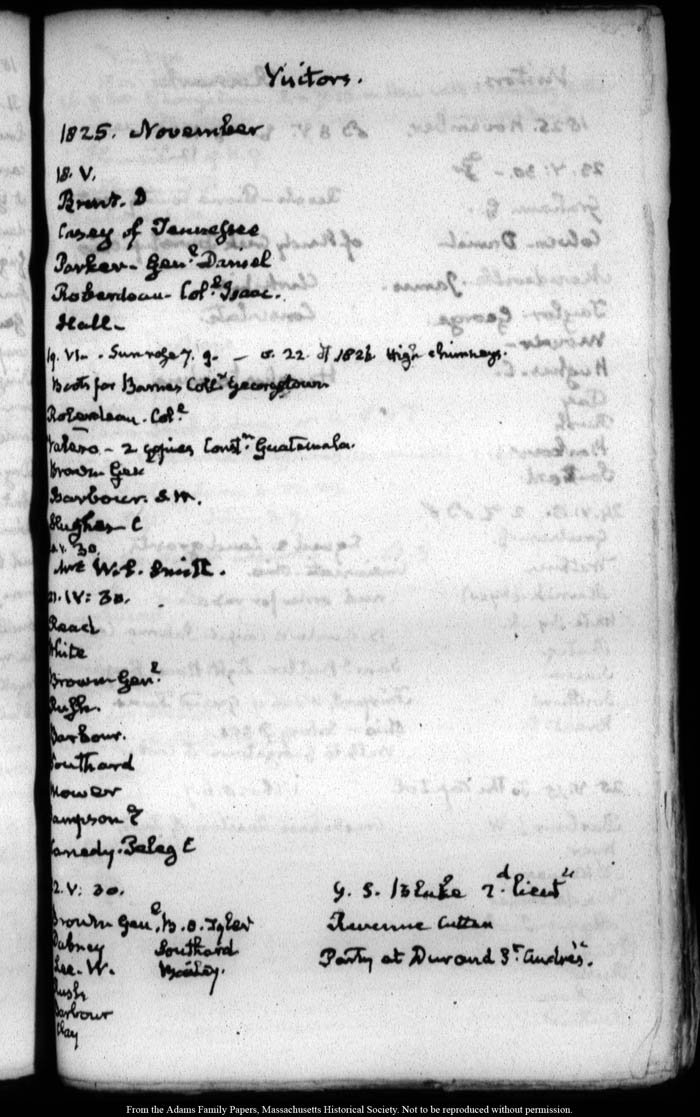 Visitors.
1825. November
18. V.
Brent. D
Casey of Tennessee
Parker - Genl. Daniel
Roberdeau - Coll. Isaac.
Hall -
19. VI - . Sun rose 7. 9. - 0. 22 of High chimneys.
Boots for Barnes Georgetown
Roberdeau. Coll.
- 2 copies Constn. Guatamala.
Brown Gen
Barbour. S. W.
Hughes - C
30.
W. S. Smith.
21. IV: 30.
Read
White
Brown Genl.
Rush.
Barbour.
Southard
Mower
Sampson
Peleg C
22. V: 30.
G. S. Blake 2d. Lieut
Brown Genl. B. O. Tyler
Revenue Cutter
Dabney Southard
Party at Durand St. André's.
Lee. W. Bailey.
Rush
Barbour
Clay
From the Adams Family Papers, Massachusetts Historical Society. Not to be reproduced without permission.